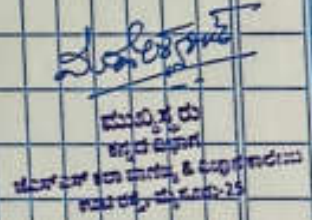 ಮುಖ್ಯಸ್ಥರು
ಕನ್ನಡ ವಿಭಾಗ
ಜೆಎಸ್ಎಸ್ ಕಲಾ ವಾಣಿಜ್ಯ & ವಿಜ್ಞಾನ ಕಾಲೇಜು
ರಸ್ತೆ, ಮೈಸೂರು-25